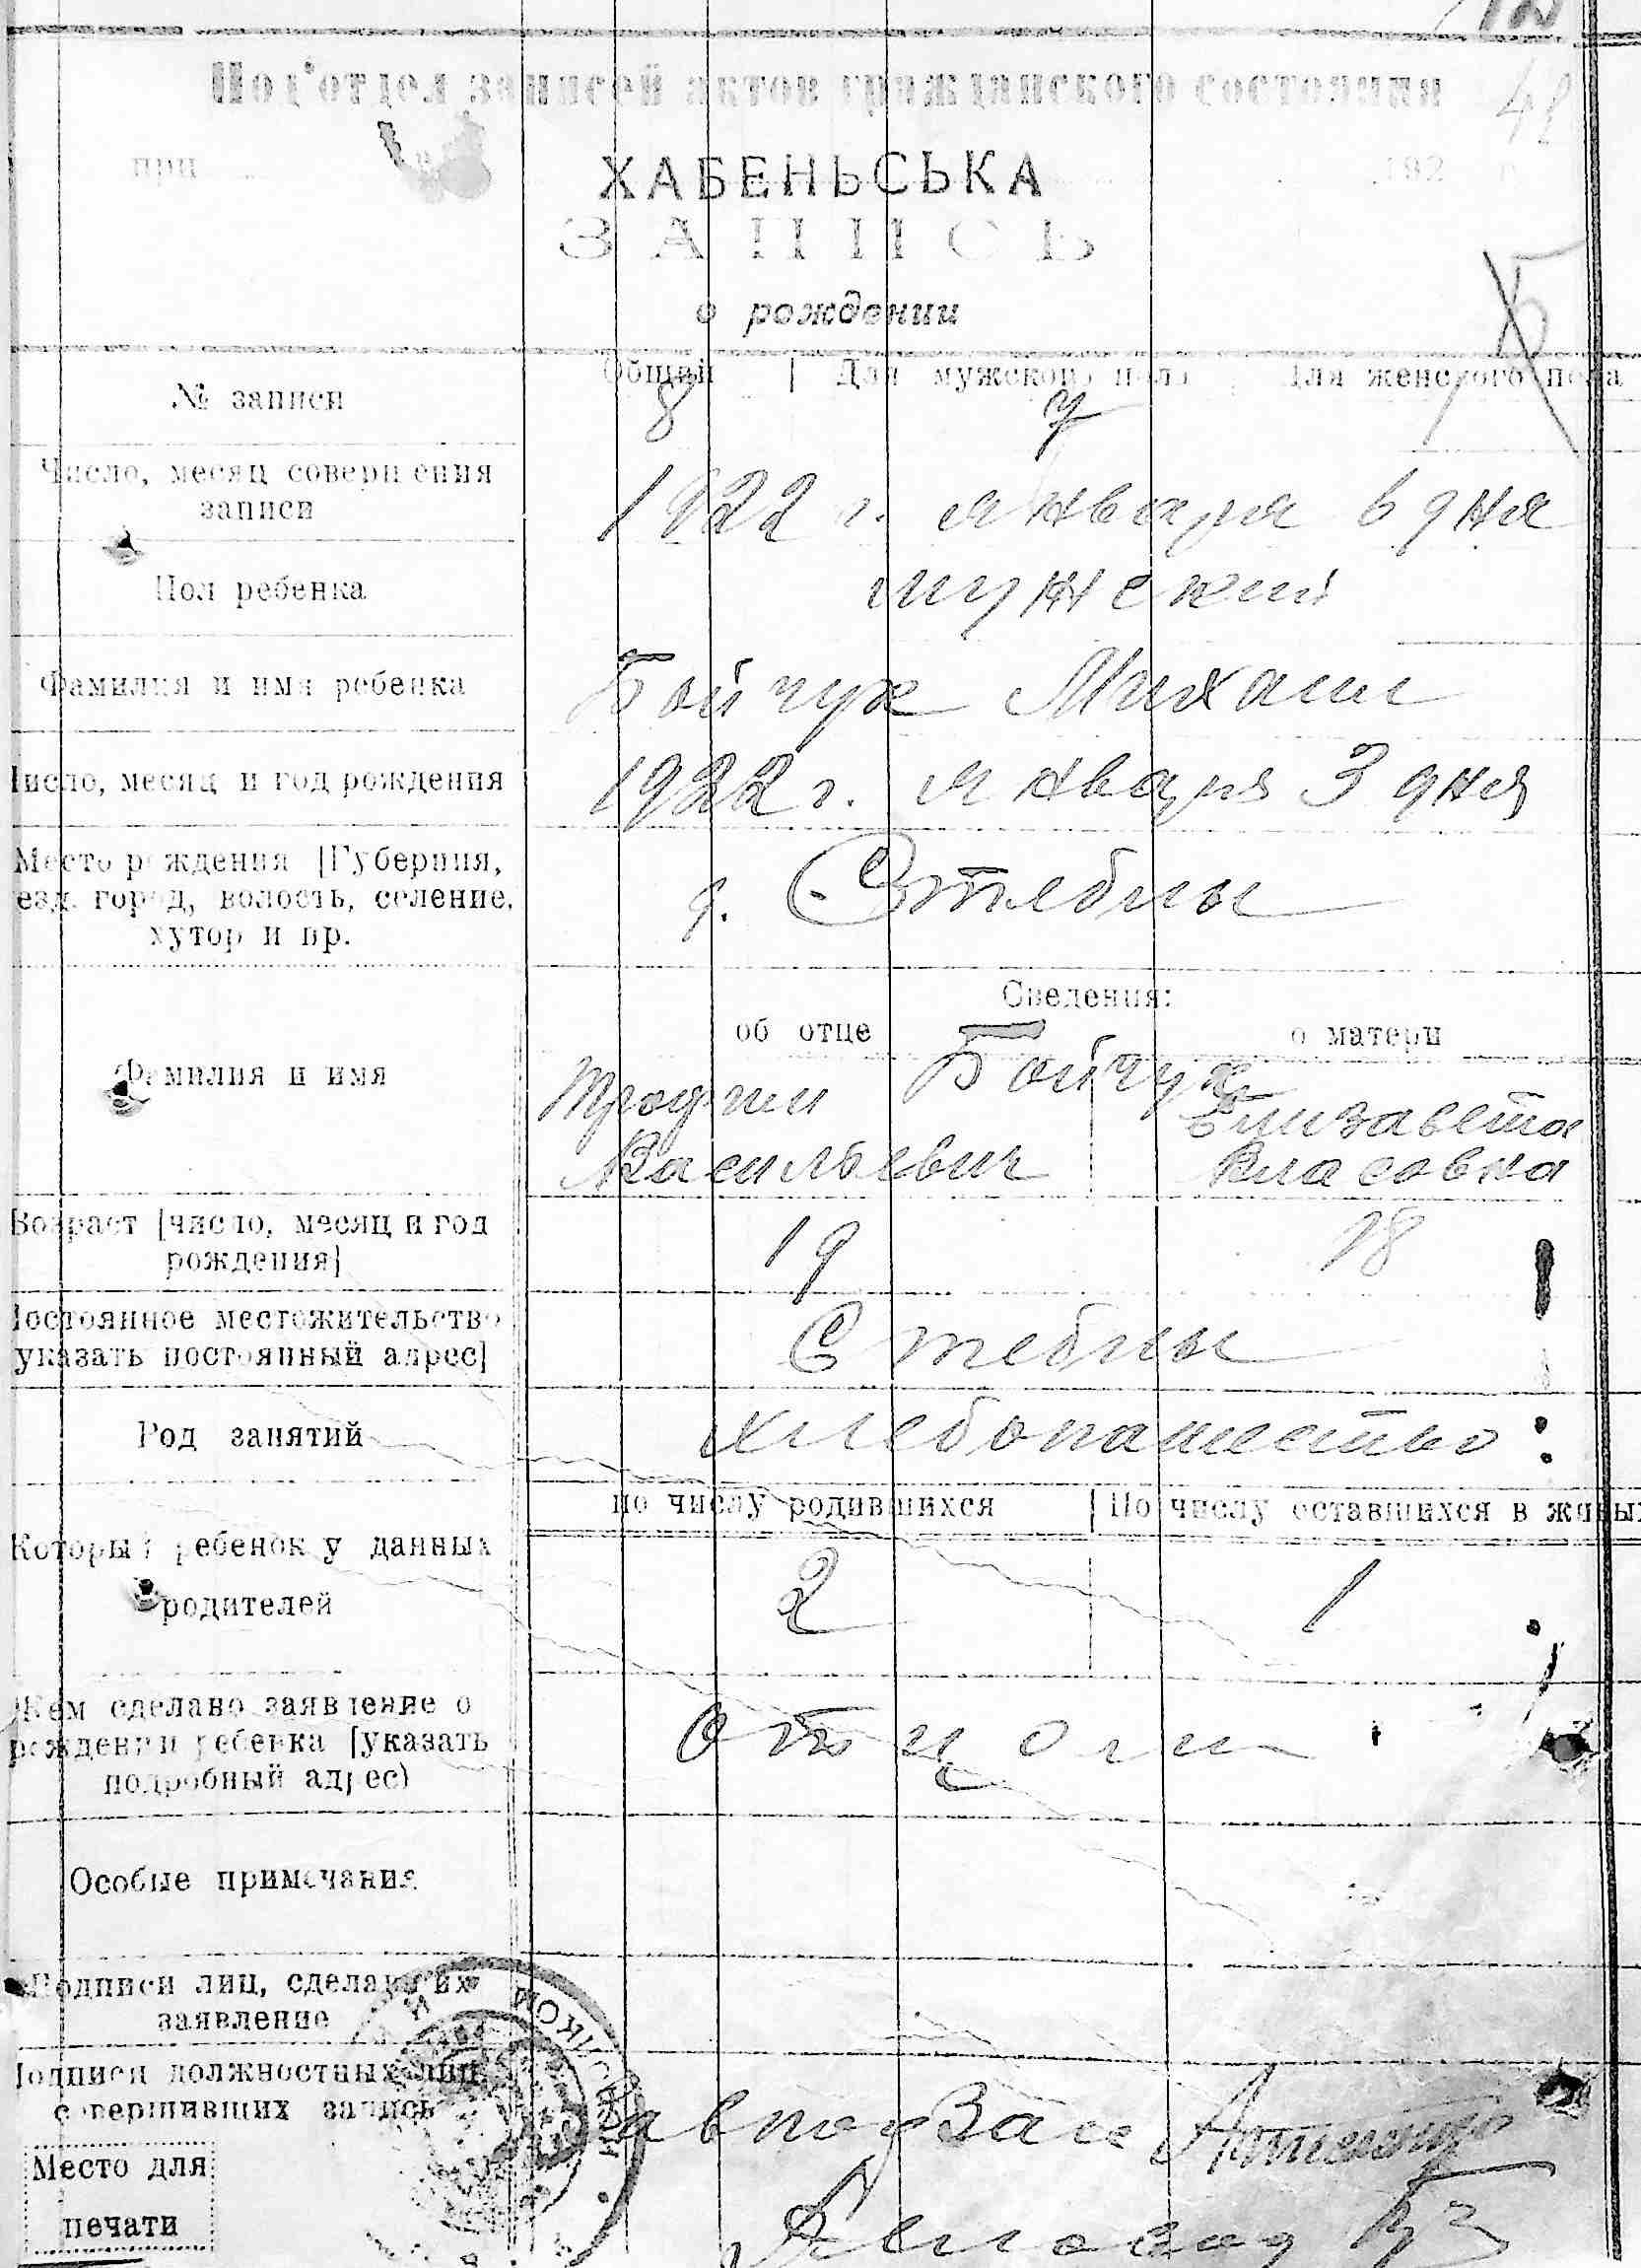 Подотдел записей актов гражданского состояния
при ХАБЕНЬСЬКА 192 г.
ЗАПИСЬ
о рождении
№ записи
Общий | Для мужского пола | Для женского пола
8 7
Число, месяц совершения записи
1922 г. января 6 дня
Пол ребенка
мужский
Фамилия и имя ребенка
Бойчук Михаил
Число, месяц и год рождения
1922 г. января 3 дня
Место рождения [Губерния,
уезд, город, волость, селение,
хутор и пр.
д. Стебли
Сведения:
об отце о матери
Фамилия и имя
Бойчук
Трофим Елизавета
Васильевич Власовна
Возраст [число, месяц и год
рождения]
19 18
Постоянное местожительство
указать постоянный адрес]
Стебли
Род занятий
хлебопашество
по числу родившихся | По числу оставшихся в живых
Который ребенок у данных
родителей
2 1
Кем сделано заявление о
рождении ребенка [указать
подробный адрес)
отцом
Особые примечания
Подписи лиц, сделавших
заявление
Подписи должностных лиц,
совершивших запись
Завподзаг
Место для
печати
Деловод